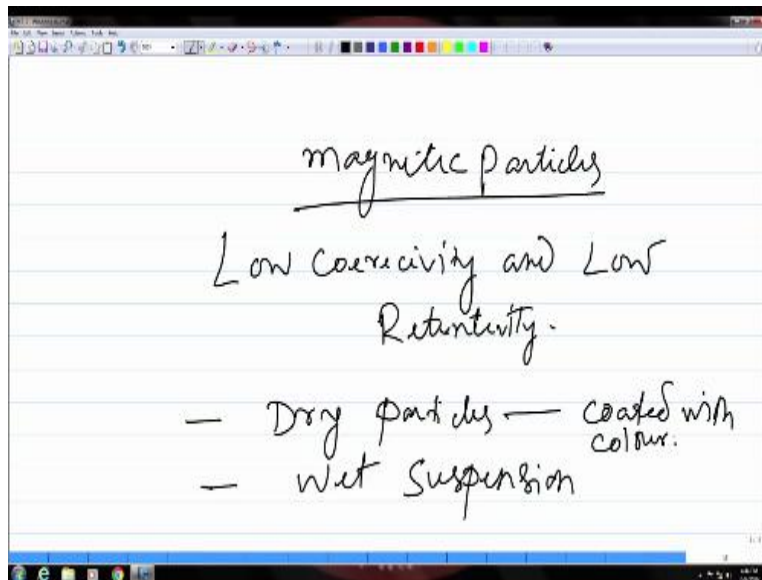 Magnetic Particles
Low Coerecivity and Low
Retentivity.
— Dry particles — coated with
colour.
— Wet Suspension